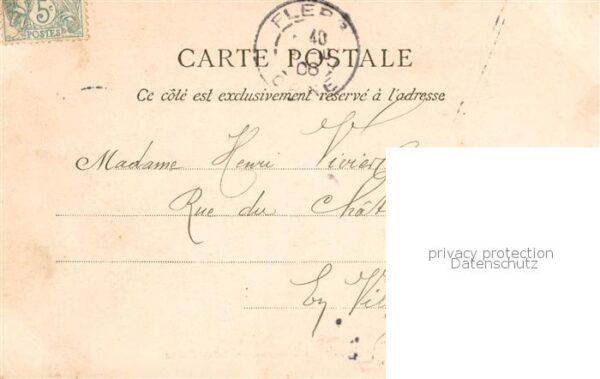 5c
POSTES
FLERS
40
08
CARTE POSTALE
Ce côté est exclusivement réservé à l'adresse
Madame Henri Vivier
Rue du Chât
privacy protection
Datenschutz
Ey Vil